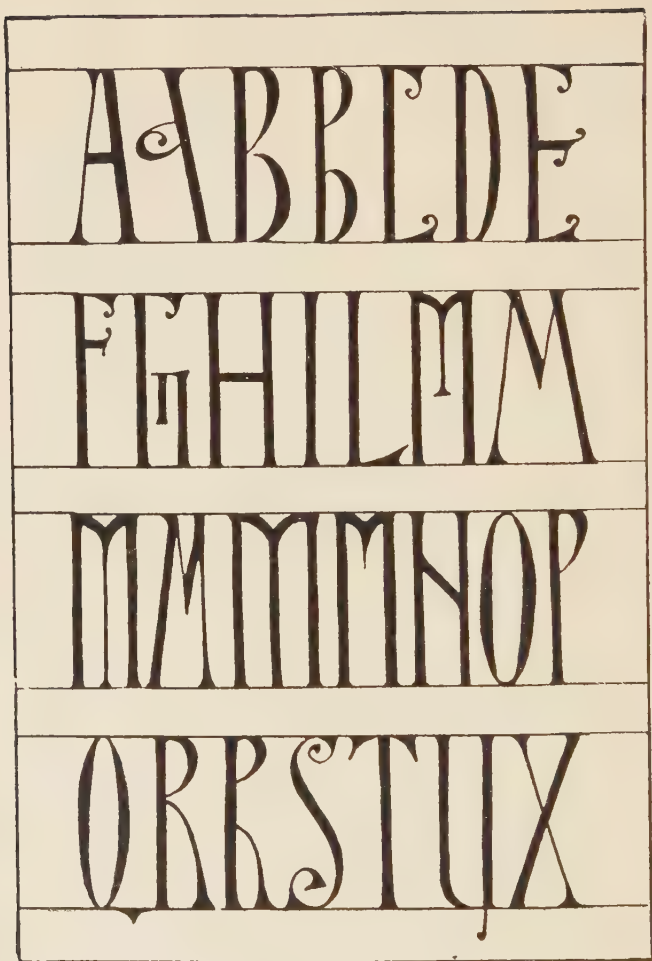 AABBCDE
FGHILMM
MMMMNOP
QRRSTUX